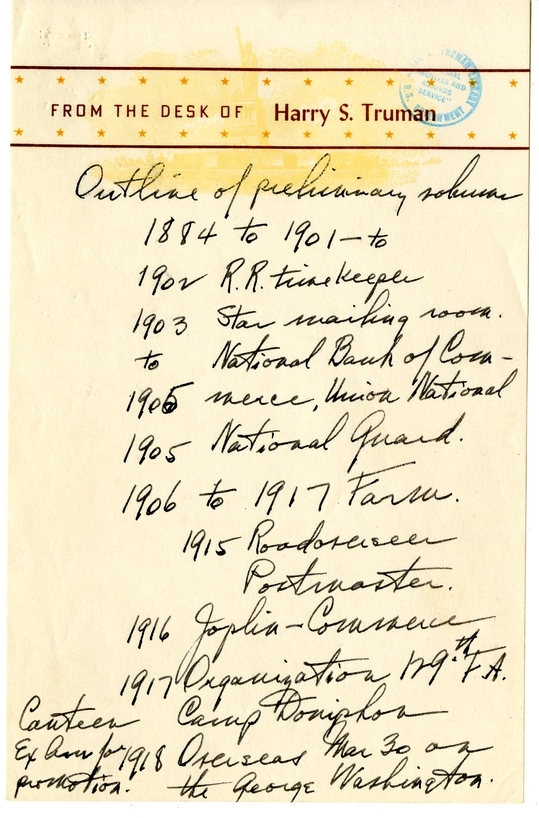 FROM THE DESK OF Harry S. Truman
Outline of preliminary volume
1884 to 1901 – to
1902 R.R. timekeeper
1903 Star mailing room.
to National Bank of Com-
1905 merce, Union National
1905 National Guard.
1906 to 1917 Farm.
1915 Roadoverseer
Postmaster.
1916 Joplin – Commerce
1917 Organization 129th F.A.
Canteen Camp Doniphon
Ex Am for 1918 Overseas Mar 30 on
promotion. the George Washington.